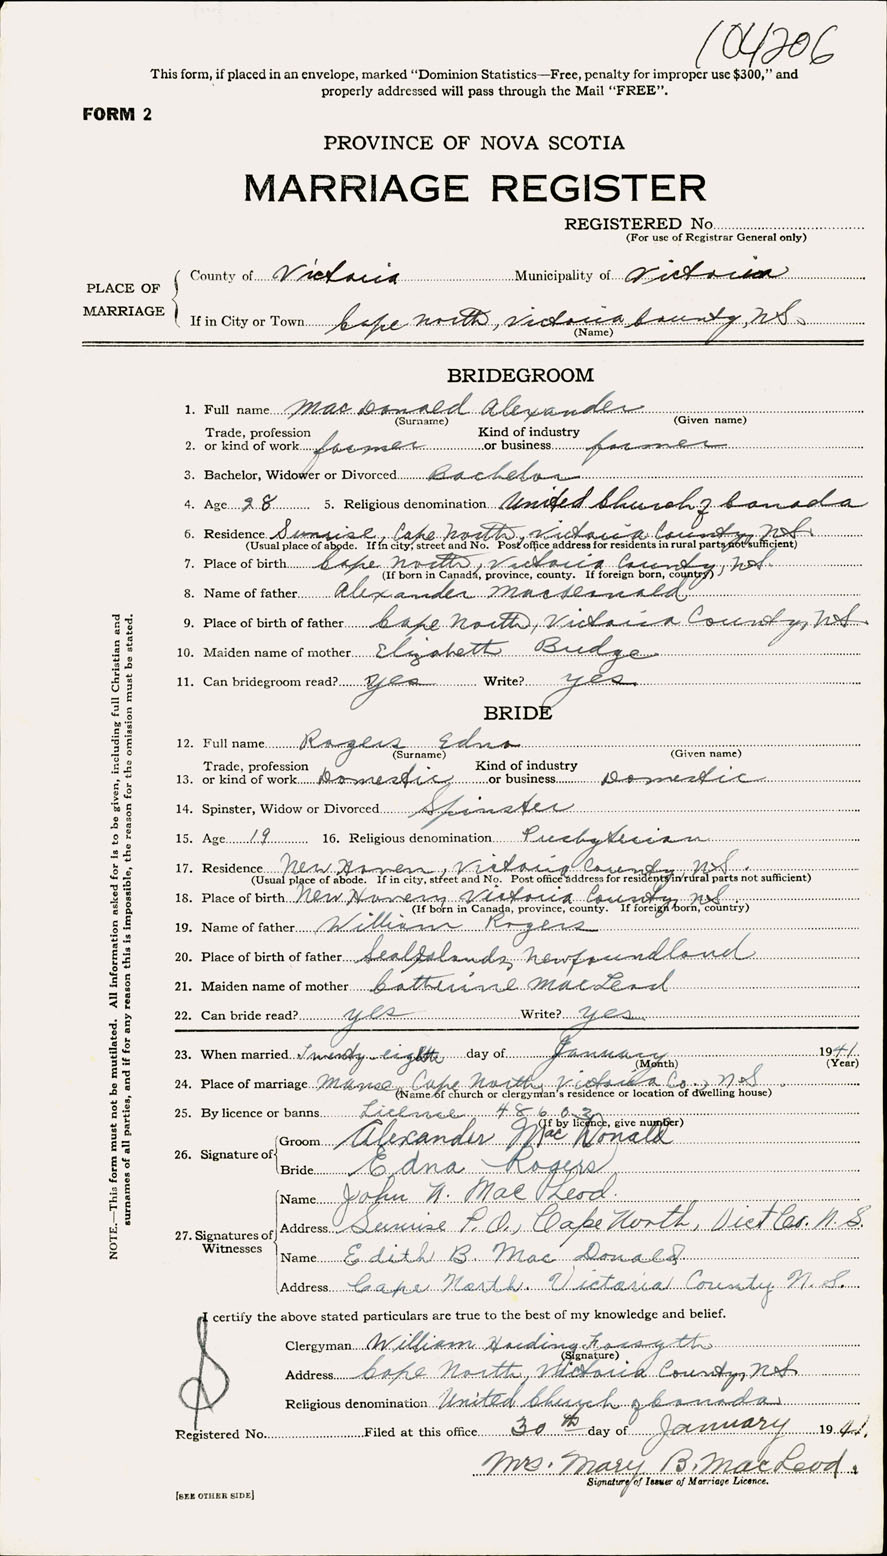 104206
This form, if placed in an envelope, marked "Dominion Statistics—Free, penalty for improper use $300," and
properly addressed will pass through the Mail "FREE".
FORM 2
PROVINCE OF NOVA SCOTIA
MARRIAGE REGISTER
REGISTERED No
(For use of Registrar General only)
PLACE OF MARRIAGE
County of Victoria Municipality of Victoria
If in City or Town Cape North, Victoria County, N.S.
(Name)
BRIDEGROOM
1. Full name MacDonald Alexander
(Surname) (Given name)
2. Trade, profession or kind of work farmer Kind of industry or business farmer
3. Bachelor, Widower or Divorced Bachelor
4. Age 28 5. Religious denomination United Church of Canada
6. Residence Sunrise, Cape North, Victoria County, N.S.
(Usual place of abode. If in city, street and No. Post office address for residents in rural parts not sufficient)
7. Place of birth Cape North, Victoria County, N.S.
(If born in Canada, province, county. If foreign born, country)
8. Name of father Alexander MacDonald
9. Place of birth of father Cape North, Victoria County, N.S.
10. Maiden name of mother Elizabeth Budge
11. Can bridegroom read? yes Write? yes
BRIDE
12. Full name Rogers Edna
(Surname) (Given name)
13. Trade, profession or kind of work Domestic Kind of industry or business Domestic
14. Spinster, Widow or Divorced Spinster
15. Age 19 16. Religious denomination Presbyterian
17. Residence New Haven, Victoria County, N.S.
(Usual place of abode. If in city, street and No. Post office address for residents in rural parts not sufficient)
18. Place of birth New Haven, Victoria County, N.S.
(If born in Canada, province, county. If foreign born, country)
19. Name of father William Rogers
20. Place of birth of father Seal Islands, Newfoundland
21. Maiden name of mother Catherine MacLeod
22. Can bride read? yes Write? yes
23. When married Twenty eighth day of January 1941
(Month) (Year)
24. Place of marriage Manse, Cape North, Victoria Co., N.S.
(Name of church or clergyman's residence or location of dwelling house)
25. By licence or banns License 48603
(If by licence, give number)
26. Signature of Groom Alexander MacDonald
Bride Edna Rogers
27. Signatures of Witnesses
Name John N. MacLeod.
Address Sunrise P.O., Cape North, Vict Co. N.S.
Name Edith B. MacDonald
Address Cape North. Victoria County N.S.
I certify the above stated particulars are true to the best of my knowledge and belief.
Clergyman William Harding Forsyth
(Signature)
Address Cape North, Victoria County, N.S.
Religious denomination United Church of Canada
Registered No. Filed at this office 30th day of January 1941.
Mrs. Mary B. MacLeod.
Signature of Issuer of Marriage Licence.
[SEE OTHER SIDE]
NOTE.—This form must not be mutilated. All information asked for is to be given, including full Christian and
surnames of all parties, and if for any reason this is impossible, the reason for the omission must be stated.